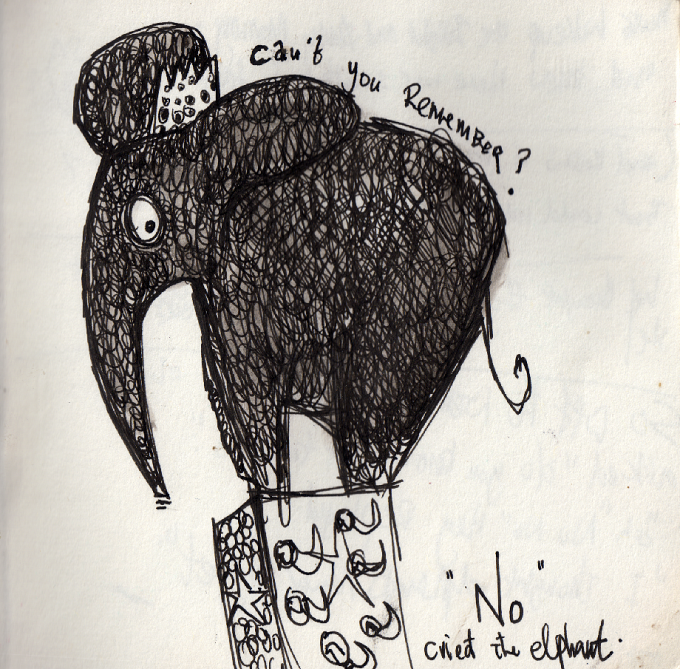 Can't you Remember?
"No"
cried the elephant.